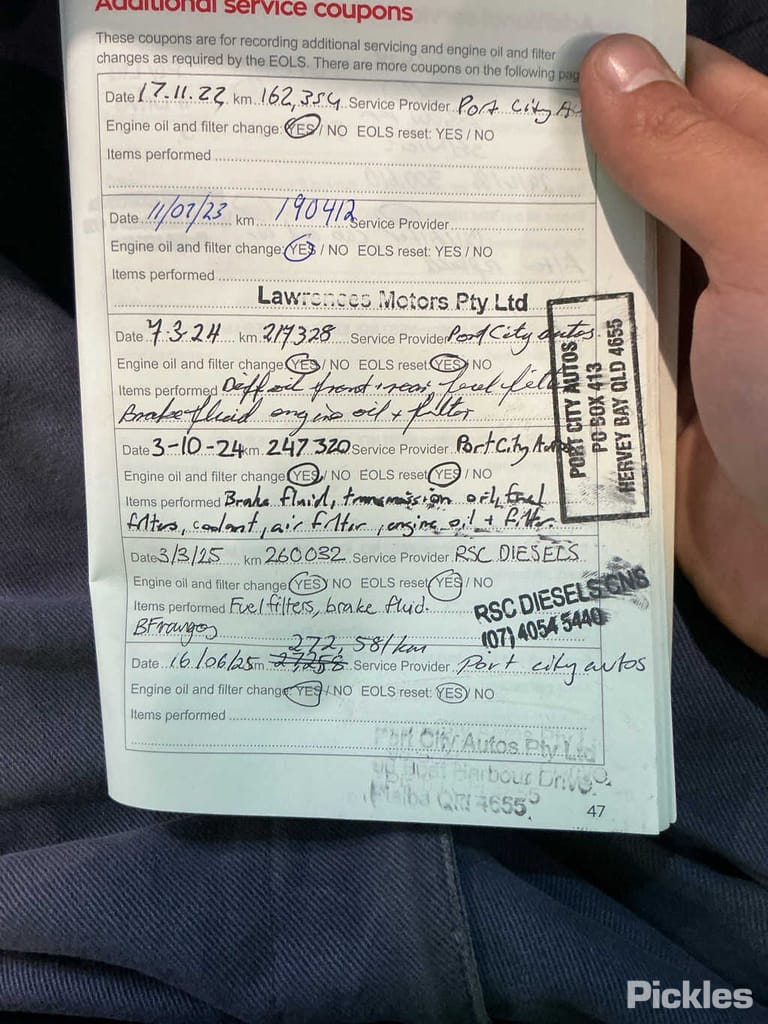 Additional service coupons
These coupons are for recording additional servicing and engine oil and filter
changes as required by the EOLS. There are more coupons on the following
Date 17.11.22 km 162,354 Service Provider Port City
Engine oil and filter change: YES / NO EOLS reset: YES / NO
Items performed
Date 11/07/23 km 190412 Service Provider
Engine oil and filter change: YES / NO EOLS reset: YES / NO
Items performed
Lawrences Motors Pty Ltd
Date 7.3.24 km 217328 Service Provider Port City autos
Engine oil and filter change YES / NO EOLS reset YES / NO
Items performed Diff oil front + rear fuel filter
Brake fluid engine oil + filter
PORT CITY AUTOS
PO BOX 413
HERVEY BAY QLD 4655
Date 3-10-24 km 247320 Service Provider Port City Autos
Engine oil and filter change: YES / NO EOLS reset YES / NO
Items performed Brake fluid, transmission oil, fuel
filters, coolant, air filter, engine oil + filter
Date 3/3/25 km 260032 Service Provider RSC DIESELS
Engine oil and filter change YES / NO EOLS reset YES / NO
Items performed Fuel filters, brake fluid.
RSC DIESELS CNS
(07) 4054 5440
272,581km
Date 16/06/25 km 27,258 Service Provider Port city autos
Engine oil and filter change: YES / NO EOLS reset: YES / NO
Items performed
Port City Autos Pty Ltd
Boat Harbour Drive
Pialba QLD 4655
47
Pickles